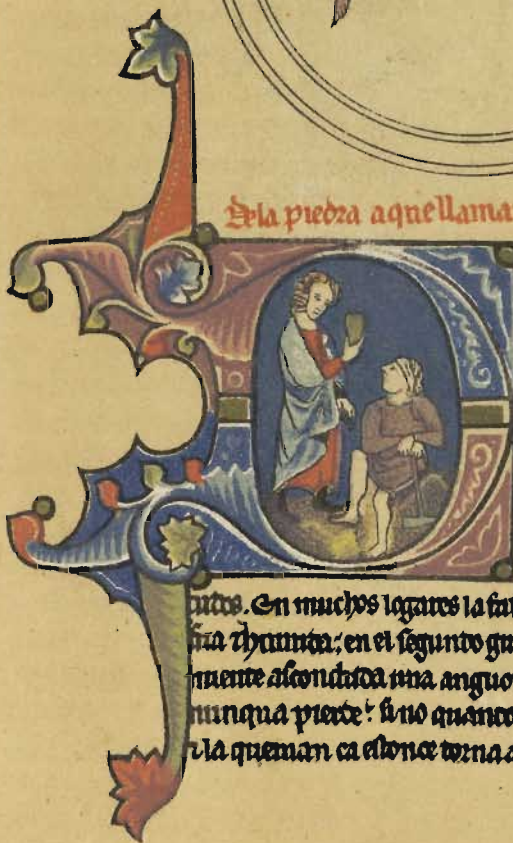 Dela piedra aquellama
tudes. En muchos logares la fal
fria ⁊ humida; en el segundo gra
miente ascondida una anguo
nunqua pierde: si no quando
⁊ la queman ca estonce torna a